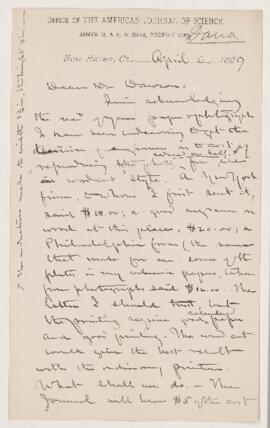 OFFICE OF THE AMERICAN JOURNAL OF SCIENCE,
JAMES D. & E. S. DANA, PROPRIETORS
Dana
New Haven, Ct., April 6, 1889
Dear Dr Dawson.
Since acknowledging
the rec't of your paper & photograph
I have been endeavoring to get the
as to cost of
reproducing the photo, reduced one half,
in wood cut style. A New York
firm, to whom I first sent it,
said $18.00; a good engraver on
wood at this place, $20.00; a
Philadelphia firm (the same
that made for me some of the
plates in my volcanic paper, taken
from photographs said $12.00. The
latter I should trust, but
the printing requires good calendered paper
and good printing. The wood cut
would give the best result
with the ordinary printers.
What shall we do. – The
Journal will bear $5 of the cost